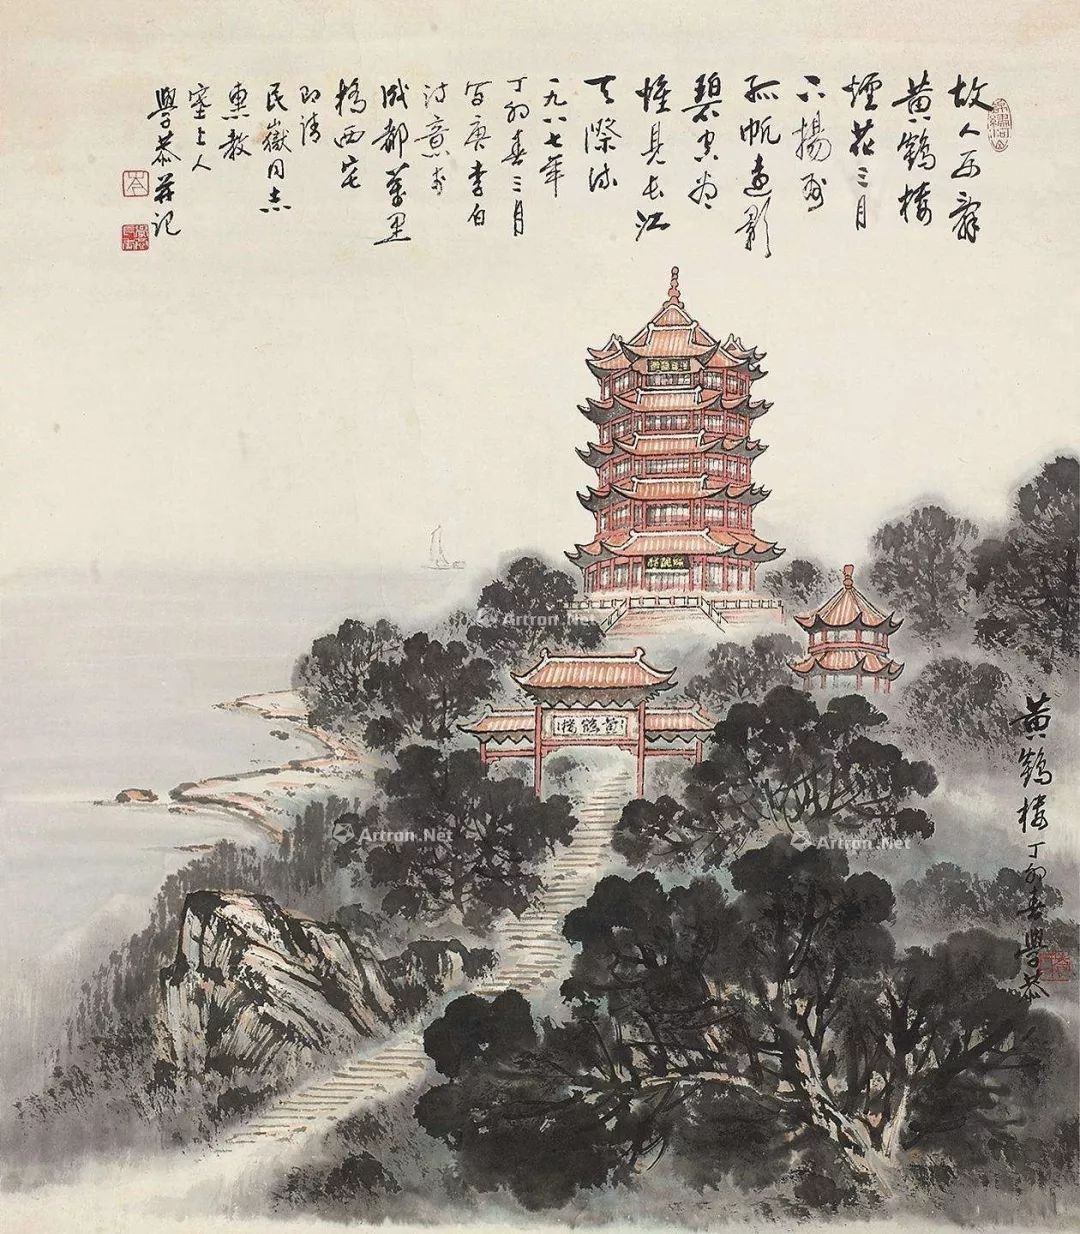 故人西辞
黄鶴楼
煙花三月
下揚州
孤帆遠影
碧空尽
惟見长江
天際流
一九八七年
丁卯春三月
写唐李白
诗意於
成都萬里
橋西宅
即请
民嶽同志
惠教
塞上人
學恭并记
黄鶴樓
黄鶴楼 丁卯春 學恭
Artron.Net
Artron.Net
Artron.Net